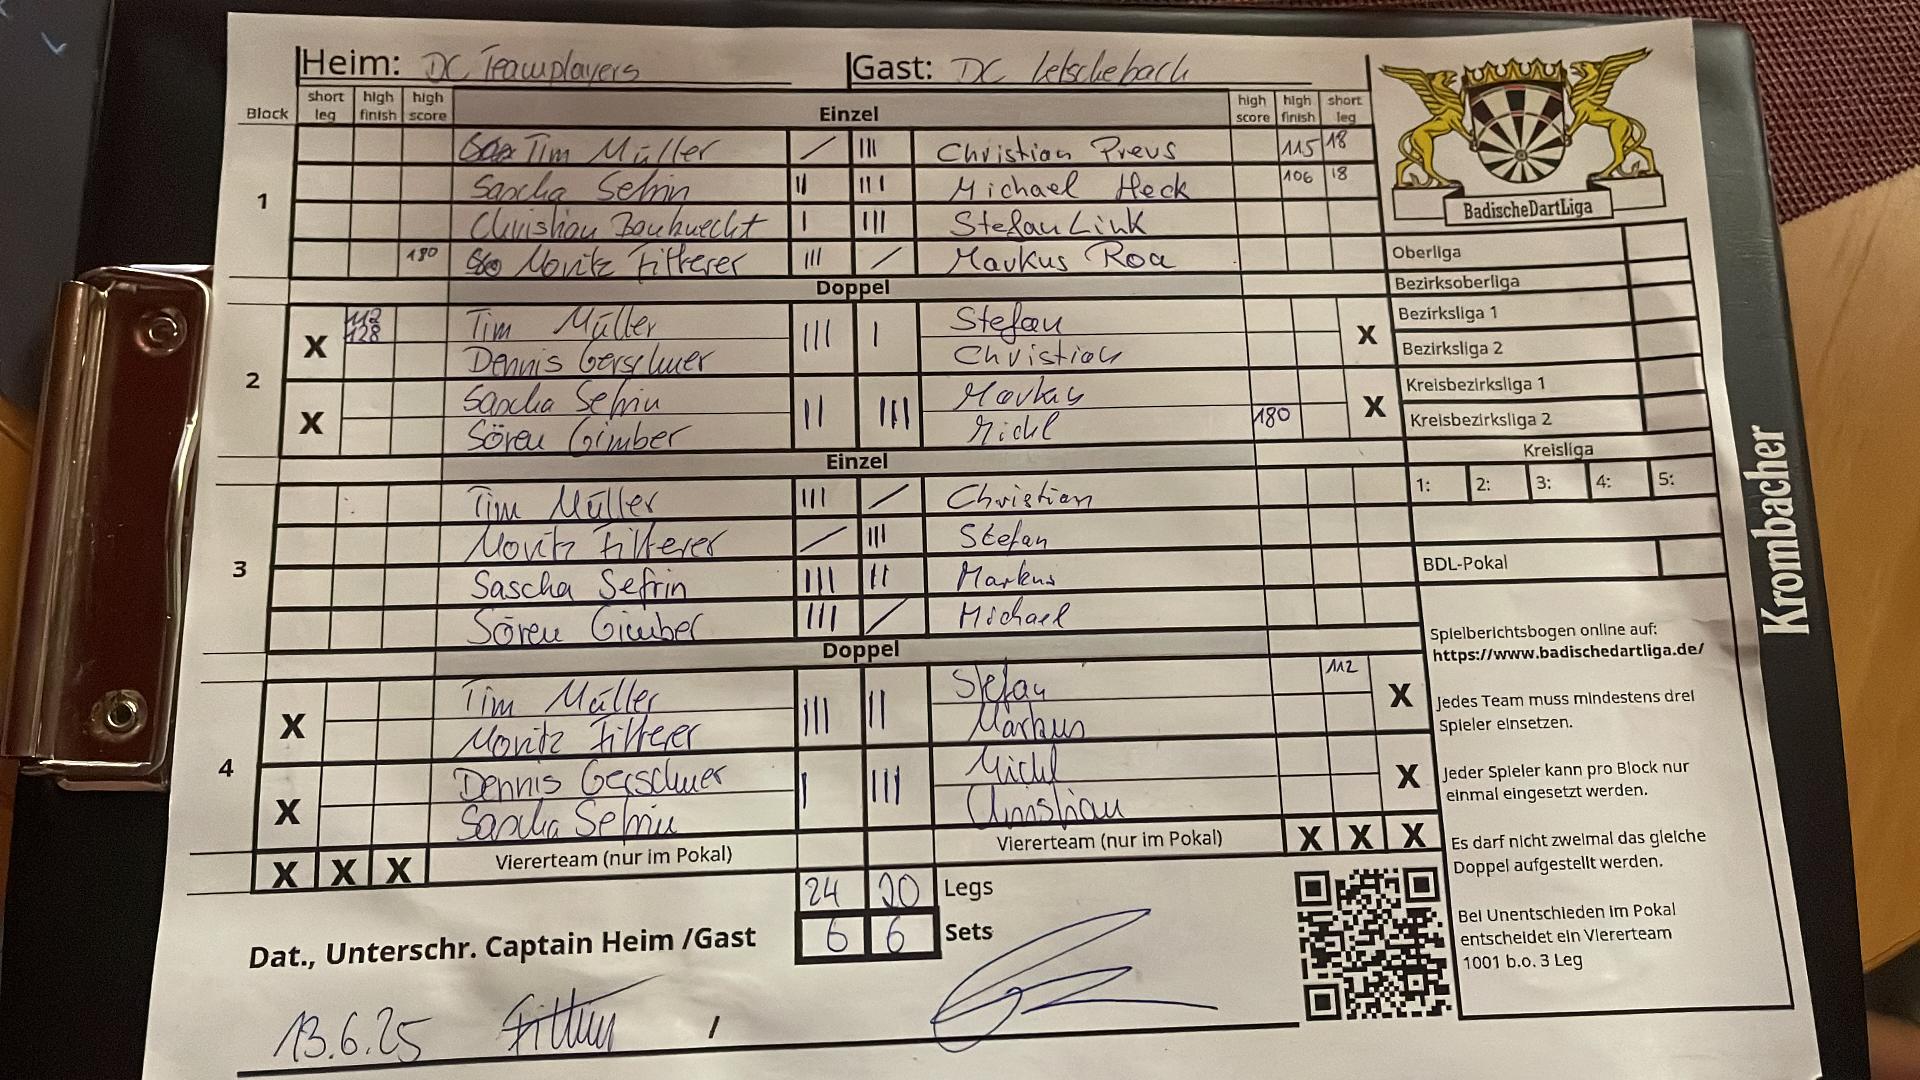 Heim: DC Teamplayers Gast: DC Letschebach
Block short leg high finish high score Einzel high score high finish short leg
1
Tim Müller / III Christian Preus 115 18
Sascha Sefrin II III Michael Heck 106 18
Christian Bauknecht I III Stefan Link
180 Moritz Fitterer III / Markus Roa
Doppel
2
X 112 128 Tim Müller III I Stefan X
Dennis Gerschner Christian
X Sascha Sefrin II III Markus X
Sören Gimber Michl 180
Einzel
3
Tim Müller III / Christian
Moritz Fitterer / III Stefan
Sascha Sefrin III II Markus
Sören Gimber III / Michael
Doppel
4
X Tim Müller III II Stefan 112 X
Moritz Fitterer Markus
X Dennis Gerschner I III Michl X
Sascha Sefrin Christian
X X X Viererteam (nur im Pokal) Viererteam (nur im Pokal) X X X
24 20 Legs
6 6 Sets
Dat., Unterschr. Captain Heim /Gast
13.6.25 /
BadischeDartLiga
Oberliga
Bezirksoberliga
Bezirksliga 1
Bezirksliga 2
Kreisbezirksliga 1
Kreisbezirksliga 2
Kreisliga
1: 2: 3: 4: 5:
BDL-Pokal
Spielberichtsbogen online auf:
https://www.badischedartliga.de/
Jedes Team muss mindestens drei
Spieler einsetzen.
Jeder Spieler kann pro Block nur
einmal eingesetzt werden.
Es darf nicht zweimal das gleiche
Doppel aufgestellt werden.
Bei Unentschieden im Pokal
entscheidet ein Viererteam
1001 b.o. 3 Leg
Krombacher